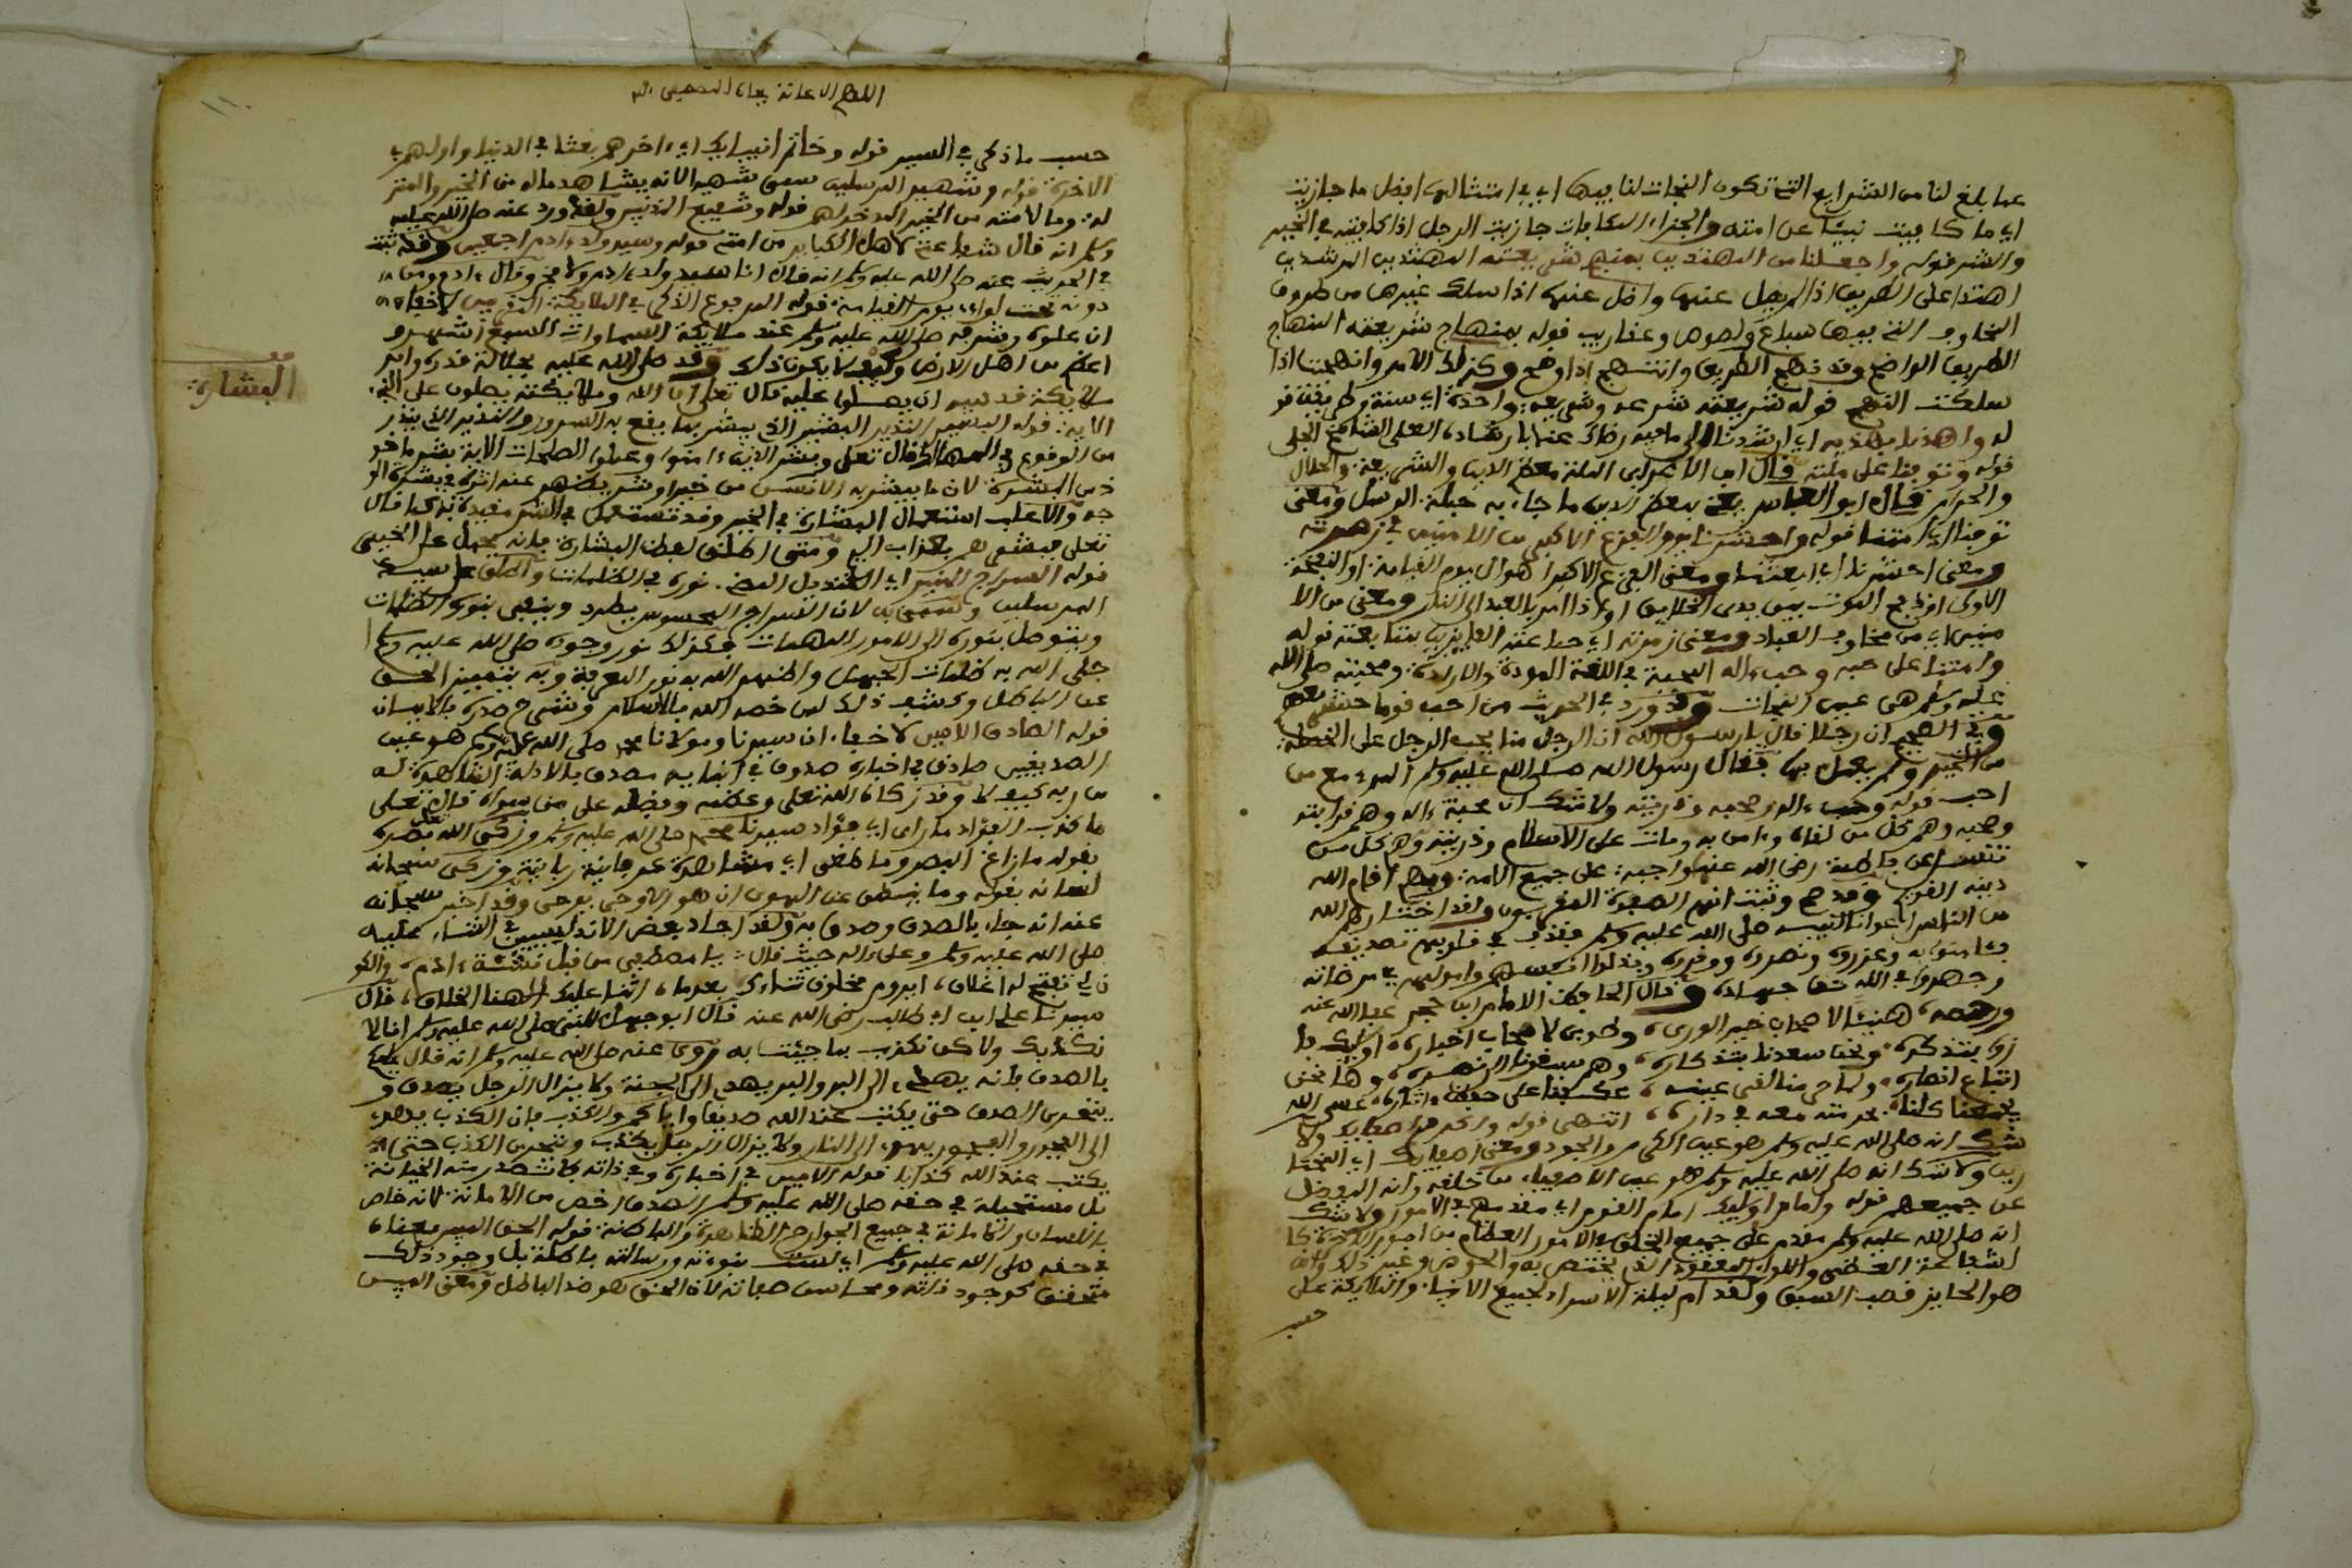 عما بلغ لنا من الشرايع التي تكون النجات لنا بيها اي في امتثالها افضل ما جازيت
اي ما كافيت نبيئا عن امته والجزاء المكافات جازيت الرجل اذا كافيته في الخير
والشر قوله واجعلنا من المهتدين بمنهاج شريعته المهتدين المرشدين
اهتدا على الطريق اذا لم يضل عنها وضل عنها اذا سلك غيرها من طروف
المخاوف التي فيها سباع ولصوص وعقارب قوله بمنهاج شريعته المنهاج
الطريق الواضح وقد نهج الطريق وانتهج اذا وضح وكذلك الامر وانهجت اذا
سلكت النهج قوله شريعته شرعه وشريعة واحدة اي سنة وطريقة
له واهدنا بهديه اي ارشدنا الى ما فيه رضاك عنا بارشاده
قوله وتوفنا على ملته قال ابن الاعرابي الملة معظم الدين والشريعة والحلال
والحرام قال ابو العباس يعني بمعظم الدين ما جاء به جملة الرسل ومعنى
توفنا اي امتنا قوله واحشرنا يوم الفزع الاكبر من الامنين في زمرته
ومعنى احشرنا اي ابعثنا ومعنى الفزع الاكبر اهوال يوم القيامة او النفخة
الاولى او ذبح الموت بين يدي الخلايق او اذا امر بالعبد الى النار ومعنى من الا
منين اي من مخاوف العباد ومعنى زمرته اي جماعته الفايزين بمتابعته قوله
وامتنا على حبه وحب ءاله المحبة في اللغة المودة والارادة ومحبته صلى الله
عليه وسلم هي عين النجات وقد ورد في الحديث من احب قوما حشر معهم
وفي الصحيح ان رجلا قال يا رسول الله ان الرجل منا يحب الرجل على الخصلة
من الخير ولم يعمل بها فقال رسول الله صلى الله عليه وسلم المرء مع من
احب قوله وحب ءاله وصحبه وذريته ولا شك ان محبة ءاله وهم قرابته
وصحبه وهم كل من لقاه وءامن به ومات على الاسلام وذريته وهم كل من
تنسل عن فاطمة رضي الله عنها واجبة على جميع الامة وبهم اقام الله
دينه القويم وقد صح وثبت انهم الصفوة المقربون ولقد اختارهم الله
من الناس اعوانا لنبيه صلى الله عليه وسلم فقذف في قلوبهم تصديقه
فءامنوا به وعزروه ونصروه ووقروه وبذلوا انفسهم واموالهم في مرضاته
وجهدوا في الله حق جهاده وقال الحافظ الامام ابن حجر عفا الله عنه
ورحمه هنيئا لاصحاب خير الورى وطوبى لاصحاب اخباره اوليك فا
زوا بتذكيره ونحن سعدنا بتذكاره وهم سبقونا الى نصره وها نحن
اتباع انصاره ولما حرمنا لقى عينه عكفنا على حفظ ءاثاره عسى الله
يجمعنا كلنا برحمته معه في داره انتهى قوله واكرم اصفيايك ولا
شك انه صلى الله عليه وسلم هو عين الكرم والجود ومعنى اصفيايك اي المختا
رين ولا شك انه صلى الله عليه وسلم هو عين الاصفياء من خلقه وانه المفضل
عن جميعهم قوله وامام اوليايك امام القوم اي مقدمهم في الامور ولا شك
انه صلى الله عليه وسلم مقدم على جميع الخلق في الامور العظام من امور الاخرة كا
الشفاعة العظمى واللواء المعقود الذي يختص به والحوض وغير ذلك وانه
هو الحايز قصب السبق ولقد ام ليلة الاسراء بجميع الانبياء والملايكة على
حسب
حسب ما ذكر في السير قوله وخاتم انبيايك اي ءاخرهم بعثا في الدنيا واولهم في
الاخرة قوله وشهيد المرسلين سمي شهيدا لانه يشاهد ماله من الخير والمنز
لة وما لامته من الخير المدخر لهم قوله وشفيع المذنبين ولقد ورد عنه صلى الله عليه
وسلم انه قال شفاعتي لاهل الكباير من امتي قوله وسيد ولد ءادم اجمعين وقد ثبت
في الحديث عنه صلى الله عليه وسلم انه قال انا سيد ولد ءادم ولا فخر وقال ءادم ومن
دونه تحت لواءي يوم القيامة قوله المرفوع الذكر في الملايكة المقربين لا خفاء
ان علوه وشرفه صلى الله عليه وسلم عند ملايكة السماوات السبع اشهر و
اعظم من اهل الارض وكيف لا يكون ذلك وقد صلى الله عليه بجلالة قدره وامر
ملايكة قدسه ان يصلوا عليه قال تعلى ان الله وملايكته يصلون على النبي
الاية قوله البشير النذير البشير الذي يبشر بما يقع به السرور والنذير الذي ينذر
من الوقوع في المهالك قال تعلى وبشر الذين ءامنوا وعملوا الصلحات الاية بشر ماخو
ذ من البشرة لان ما يبشر به الانسان من خير او شر يظهر عنه اثره في بشرة الو
جه والاغلب استعمال البشارة في الخير وقد تستعمل في الشر مقيدة به كما قال
تعلى فبشرهم بعذاب اليم ومتى اطلق لفظ البشارة فانه يحمل على الخير
قوله السراج المنير اي القنديل المضيء نوره في الظلمات واطلق على سيد
المرسلين وسمي به لان السراج المحسوس يطرد وينفي بنوره الظلمات
ويتوصل بنوره الى الامور المهمات فكذلك نور وجوده صلى الله عليه وسلم
جلى الله به ظلمات الجهل واظهر الله به نور المعرفة وبه يتميز الحق
عن الباطل وكشف ذلك لمن خصه الله بالاسلام وشرح صدره بالايمان
قوله الصادق الامين لا خفاء ان سيدنا ومولانا محمد صلى الله عليه وسلم هو عين
الصديقين صادق في اخباره صدوق في انبايه مصدق بالادلة الظاهرة له
من ربه كيف لا وقد زكاه الله تعلى وعظمه وفضله على من سواه قال تعلى
ما كذب الفؤاد ما راى اي فؤاد سيدنا محمد صلى الله عليه وسلم وزكى الله تعلى بصره
بقوله ما زاغ البصر وما طغى اي مشاهدة عرفانية ربانية وزكى سبحانه
لسانه بقوله وما ينطق عن الهوى ان هو الا وحي يوحى وقد اخبر سبحانه
عنه انه جاء بالصدق وصدق به ولقد اجاد بعض الاندلسيين في الثناء عليه
صلى الله عليه وسلم وعلى ءاله حيث قال يا مصطفى من قبل نشئة ءادم والكو
ن لم تفتح له اغلاق ايروم مخلوق ثناءك بعدما اثنى عليك الهنا الخلاق قال
سيدنا علي ابن ابي طالب رضي الله عنه قال ابو جهل للنبي صلى الله عليه وسلم انا لا
نكذبك ولاكن نكذب بما جيت به وروي عنه صلى الله عليه وسلم انه قال عليكم
بالصدق فانه يهدي الى البر والبر يهدي الى الجنة ولا يزال الرجل يصدق و
يتحرى الصدق حتى يكتب عند الله صديقا واياكم والكذب فان الكذب يهدي
الى الفجور والفجور يهدي الى النار ولا يزال الرجل يكذب ويتحرى الكذب حتى
يكتب عند الله كذابا قوله الامين في اخباره وفي ذاته لا تصدر منه الخيانة
بل مستحيلة في حقه صلى الله عليه وسلم الصدق اخص من الامانة لانه خاص
باللسان والامانة في جميع الجوارح الظاهرة والباطنة قوله الحق المبين معناه
في حقه صلى الله عليه وسلم اي ليست نبوءته ورسالته باطلة بل وجود ذلك
متحقق كوجود ذاته ومحاسن صفاته لان الحق هو ضد الباطل ومعنى المبين
البشارة